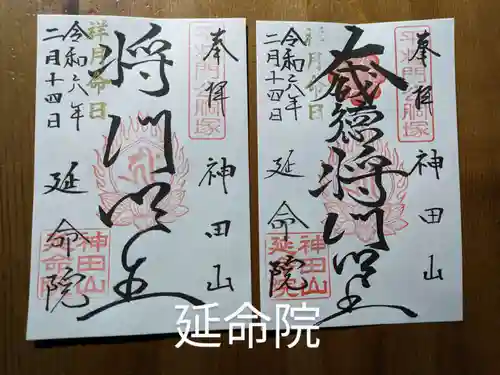 奉拝
平将門公胴塚
神田山
将門明王
祥月命日
令和六年
二月十四日
延命院
神田山
延命院
奉拝
平将門公胴塚
神田山
大威徳将門明王
祥月命日
令和六年
二月十四日
延命院
神田山
延命院
延命院